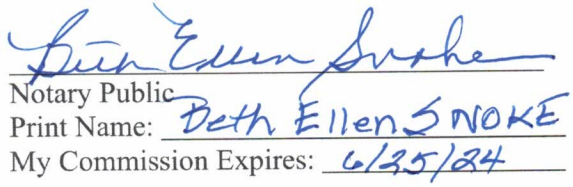 Beth Ellen Snoke
Notary Public
Print Name: Beth Ellen SNOKE
My Commission Expires: 6/25/24